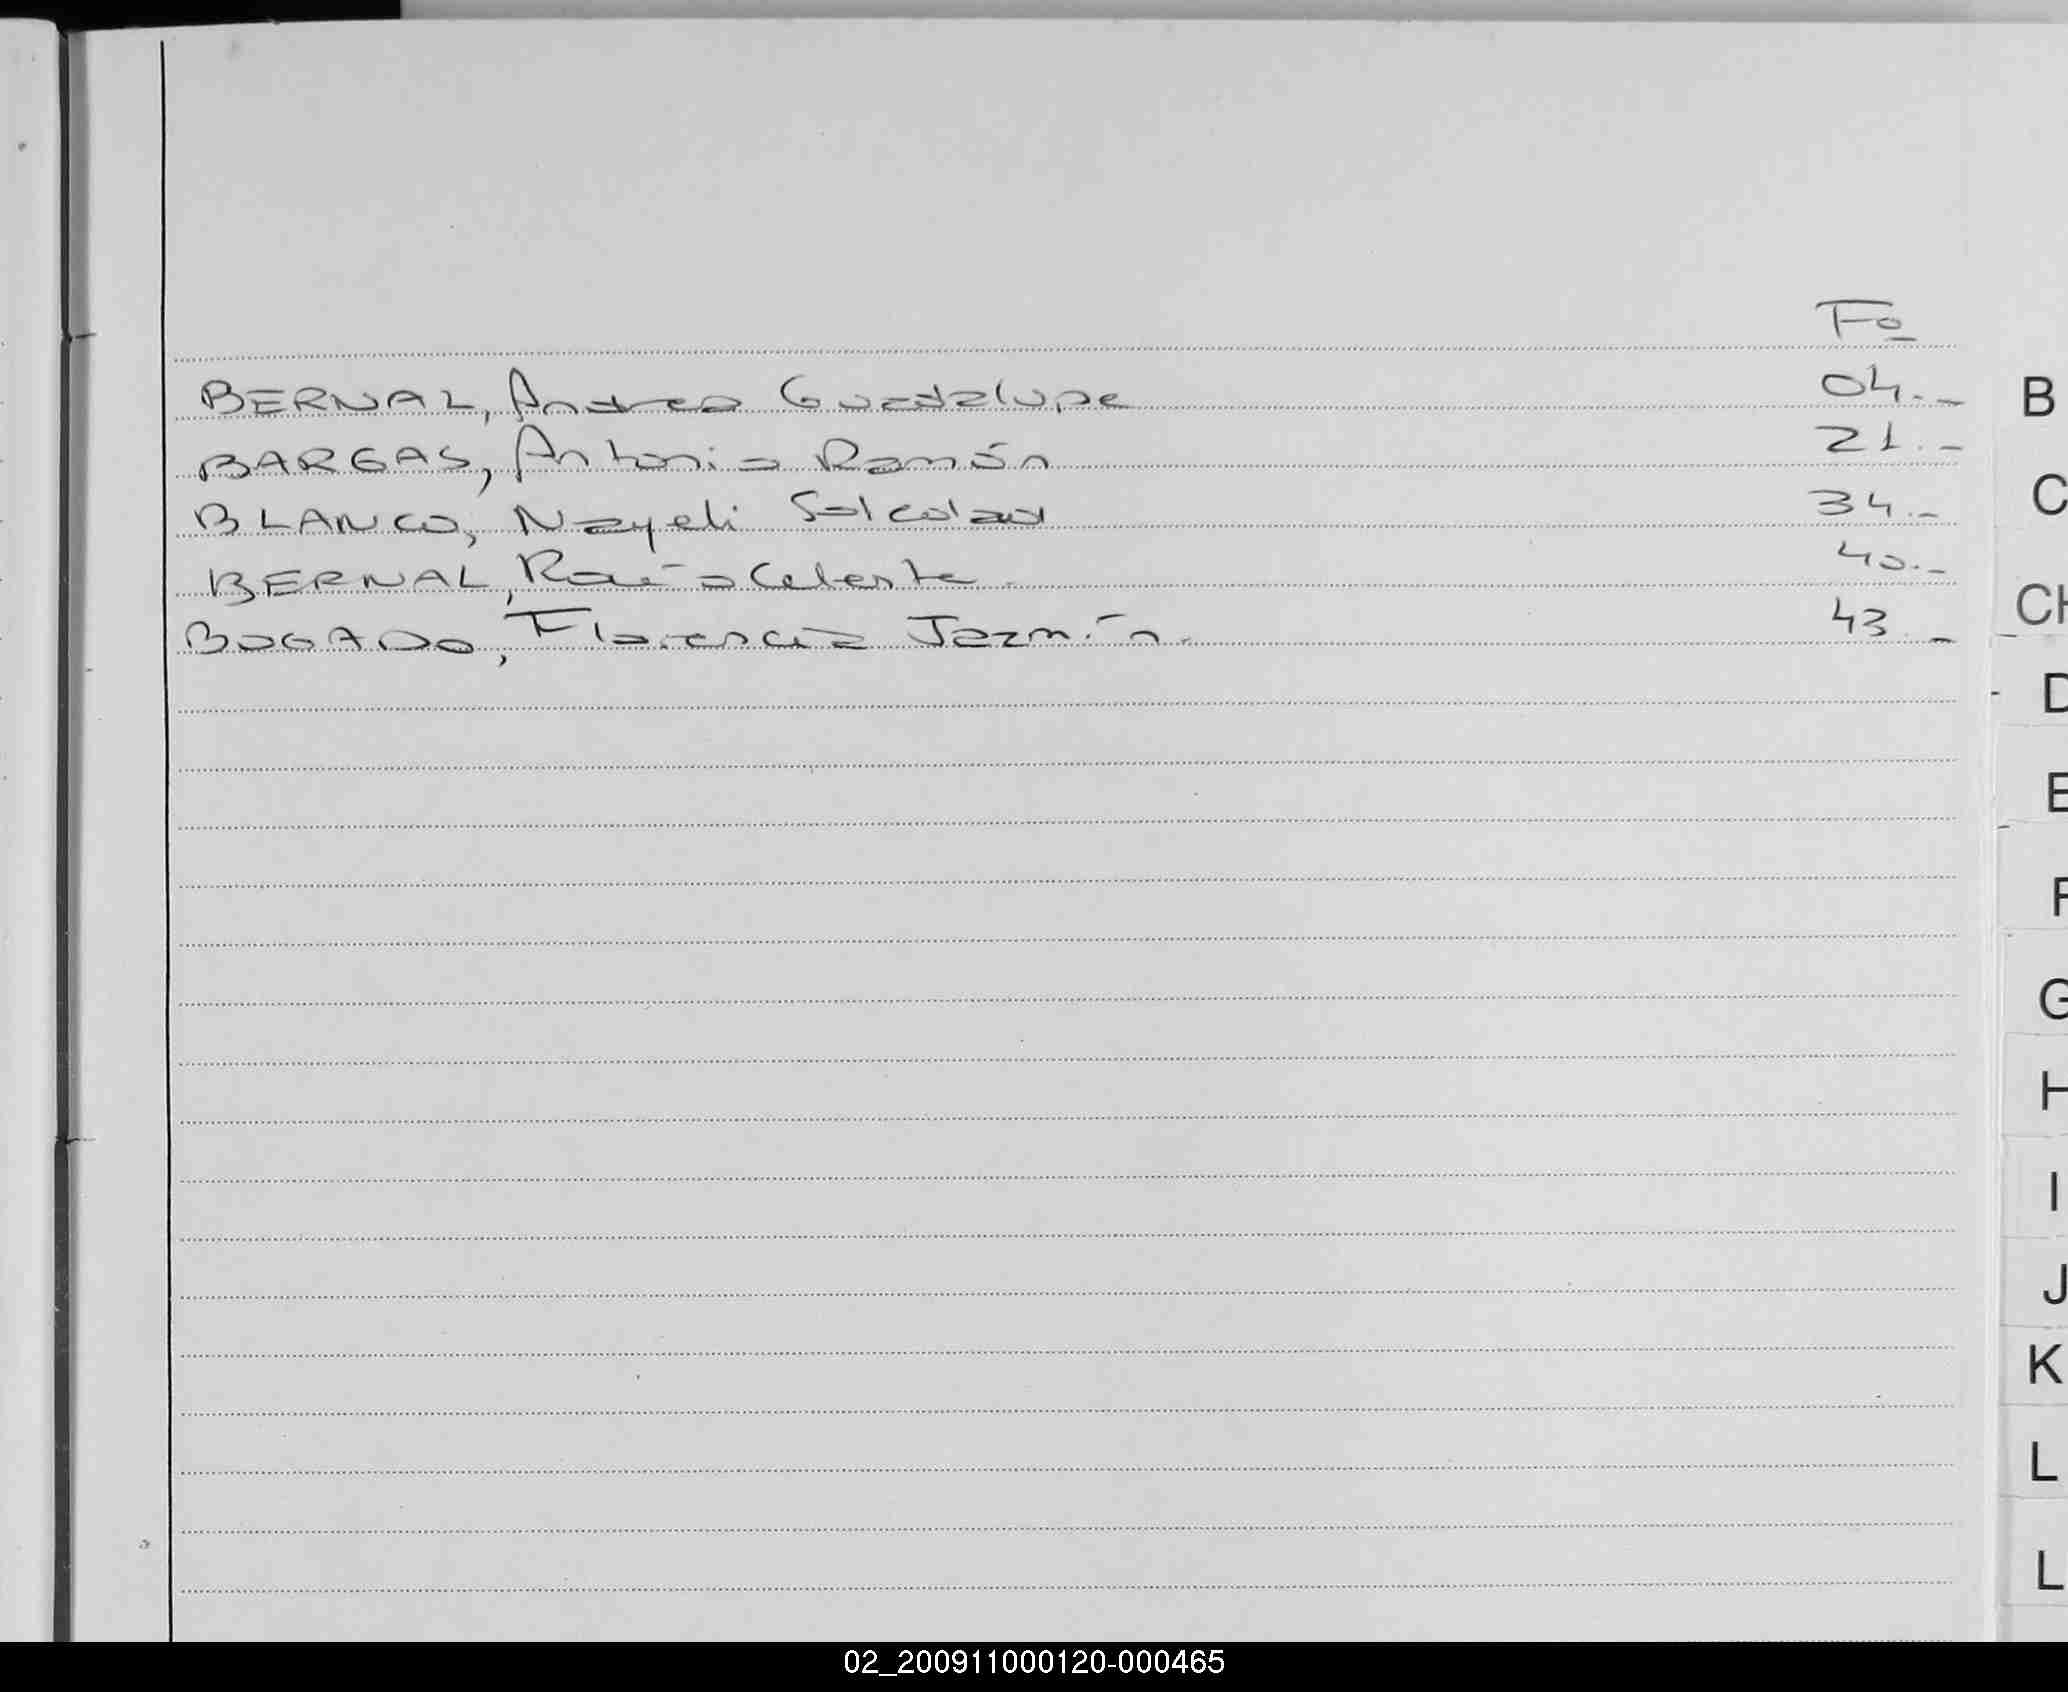 Fº
BERNAL, Andrea Guadalupe 04.-
BARGAS, Antonio Ramón 21.-
BLANCO, Nayeli Soledad 34.-
BERNAL, Rocío Celeste 40.-
BOGADO, Florencia Jazmín. 43.-
B
C
CH
D
E
F
G
H
I
J
K
L
L
02_200911000120-000465